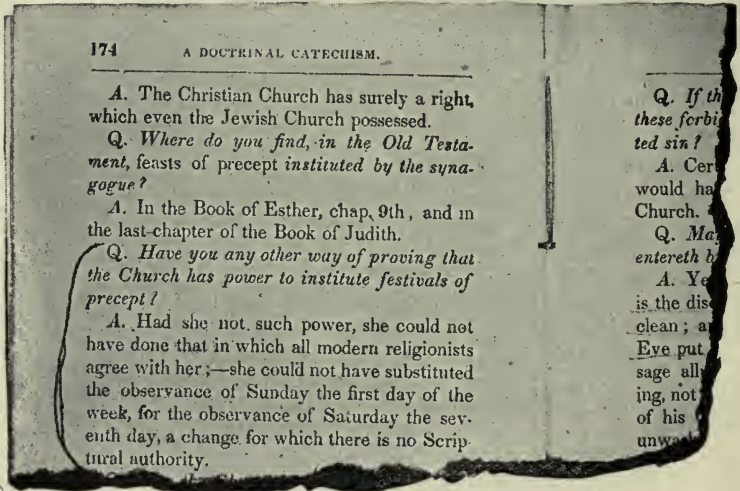 174 A DOCTRINAL CATECHISM.
A. The Christian Church has surely a right,
which even the Jewish Church possessed.
Q. Where do you find, in the Old Testa-
ment, feasts of precept instituted by the syna-
gogue?
A. In the Book of Esther, chap. 9th, and in
the last chapter of the Book of Judith.
Q. Have you any other way of proving that
the Church has power to institute festivals of
precept?
A. Had she not such power, she could not
have done that in which all modern religionists
agree with her;—she could not have substituted
the observance of Sunday the first day of the
week, for the observance of Saturday the sev-
enth day, a change for which there is no Scrip-
tural authority.
Q. If th
these forbi
ted sin?
A. Cer
would ha
Church.
Q. Ma
entereth b
A. Ye
is the dis
clean; a
Eve put
sage all
ing, not
of his
unwa